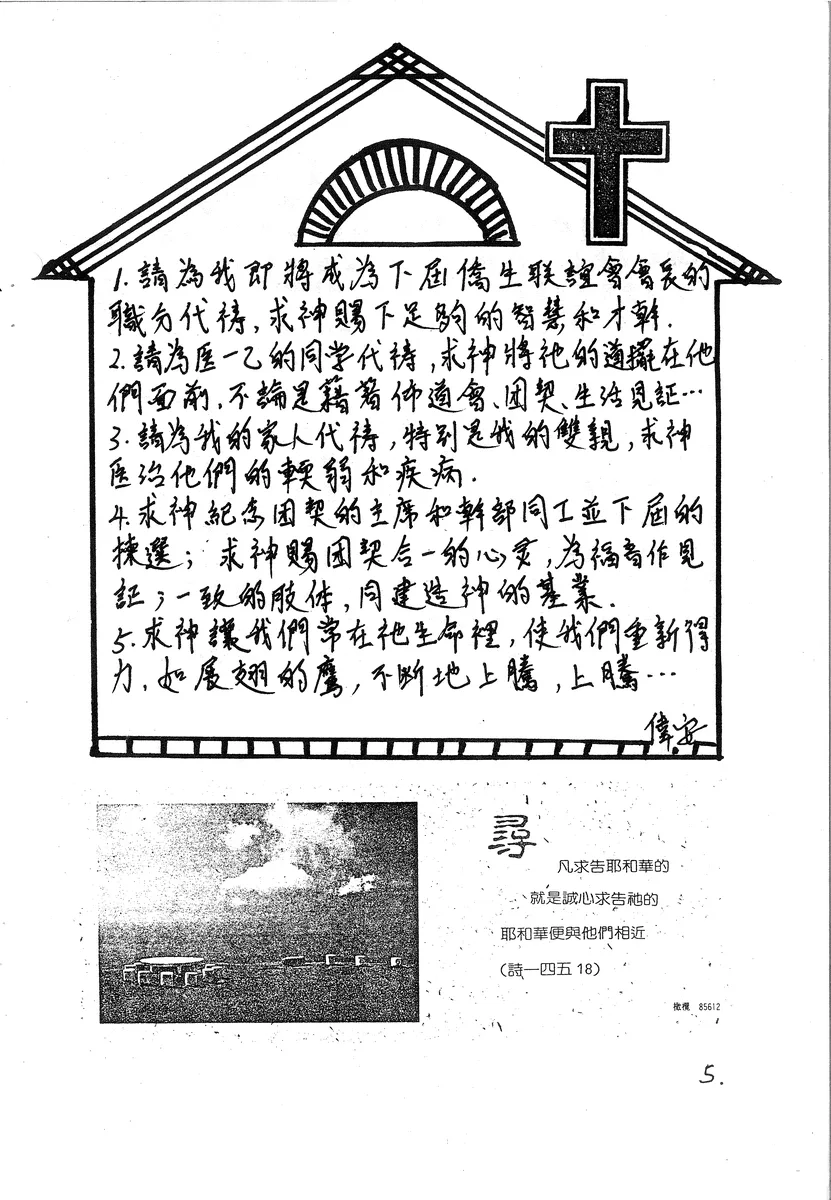 1. 請為我即將成為下屆僑生联誼會會長的
職分代禱, 求神賜下足夠的智慧和才幹.
2. 請為医一乙的同学代禱, 求神將祂的道擺在他
們面前, 不論是藉著佈道會、团契、生活見証…
3. 請為我的家人代禱, 特別是我的雙親, 求神
医治他們的軟弱和疾病.
4. 求神紀念团契的主席和幹部同工並下屆的
揀選; 求神賜团契合一的心灵, 為福音作見
証; 一致的肢体, 同建造神的基業.
5. 求神讓我們常在祂生命裡, 使我們重新得
力, 如展翅的鷹, 不断地上騰, 上騰…
偉安
尋
凡求告耶和華的
就是誠心求告祂的
耶和華便與他們相近
(詩一四五 18)
橄欖 85612
5.